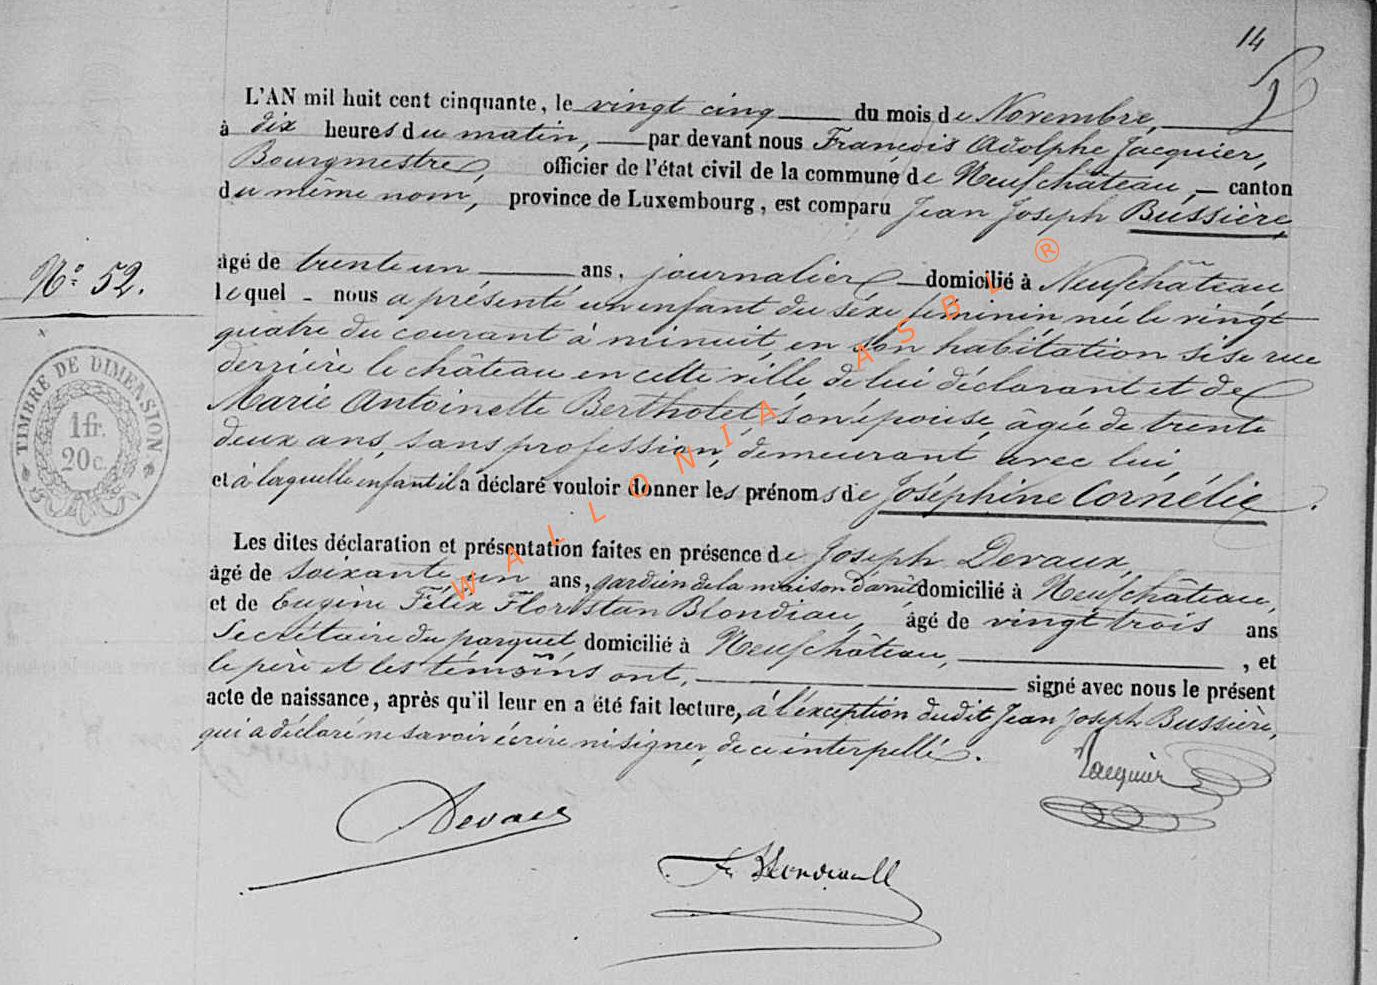 14
L'AN mil huit cent cinquante, le vingt cinq du mois de Novembre,
à dix heures du matin, par devant nous François Adolphe Jacquier,
Bourgmestre, officier de l'état civil de la commune de Neufchâteau, canton
du même nom, province de Luxembourg, est comparu Jean Joseph Bussière,
N° 52.
âgé de trente un ans, journalier domicilié à Neufchâteau
lequel - nous a présenté un enfant du séxe féminin née le vingt
quatre du courant à minuit, en son habitation sise rue
derrière le château en cette ville de lui déclarant et de
Marie Antoinette Berthotet, son épouse, âgée de trente
deux ans, sans profession, demeurant avec lui,
et à laquelle enfant il a déclaré vouloir donner les prénoms de Joséphine Cornélie.
TIMBRE DE DIMENSION
1 fr.
20 c.
Les dites déclaration et présentation faites en présence de Joseph Devaux,
âgé de soixante un ans, gardien de la maison domicilié à Neufchâteau,
et de Eugène Félix Floristan Blondiau, âgé de vingt trois ans
Secrétaire du parquet, domicilié à Neufchâteau, , et
le père et les temoins ont, signé avec nous le présent
acte de naissance, après qu'il leur en a été fait lecture, à l'éxception dudit Jean Joseph Bussière,
qui a déclaré ne savoir écrire ni signer, de ce interpellé.
Jacquier
Devaux
WALLONIA ASBL ®